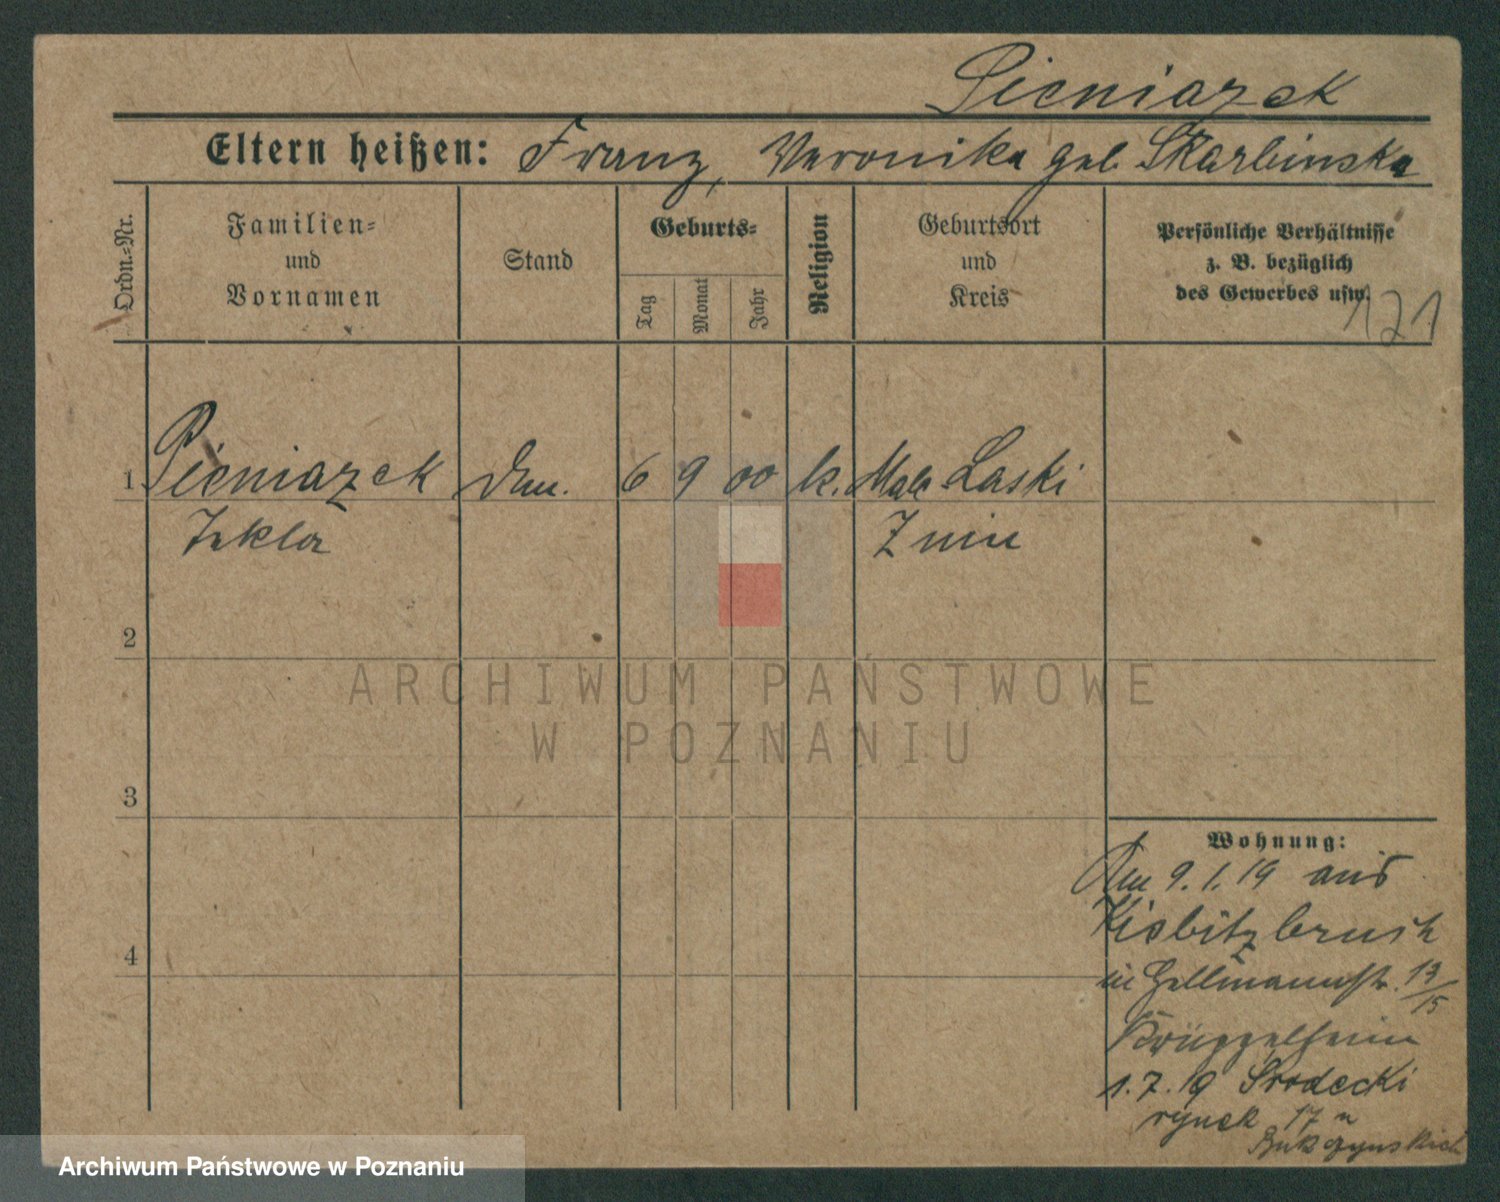 Pieniazek
Eltern heißen: Franz, Veronika geb. Skarbinska
Ordn.-Nr.
Familien-
und
Vornamen
Stand
Geburts-
Tag
Monat
Jahr
Religion
Geburtsort
und
Kreis
Persönliche Verhältnisse
z. B. bezüglich
des Gewerbes usw.
121
1 Pieniazek 6 9 00 k. Laski
Tekla Znin
2
ARCHIWUM PAŃSTWOWE
W POZNANIU
3
Wohnung:
9.1.19 aus
Kiebitzbruch
in 13/15
1.7.19 Srodecki
rynek 17
4
Archiwum Państwowe w Poznaniu